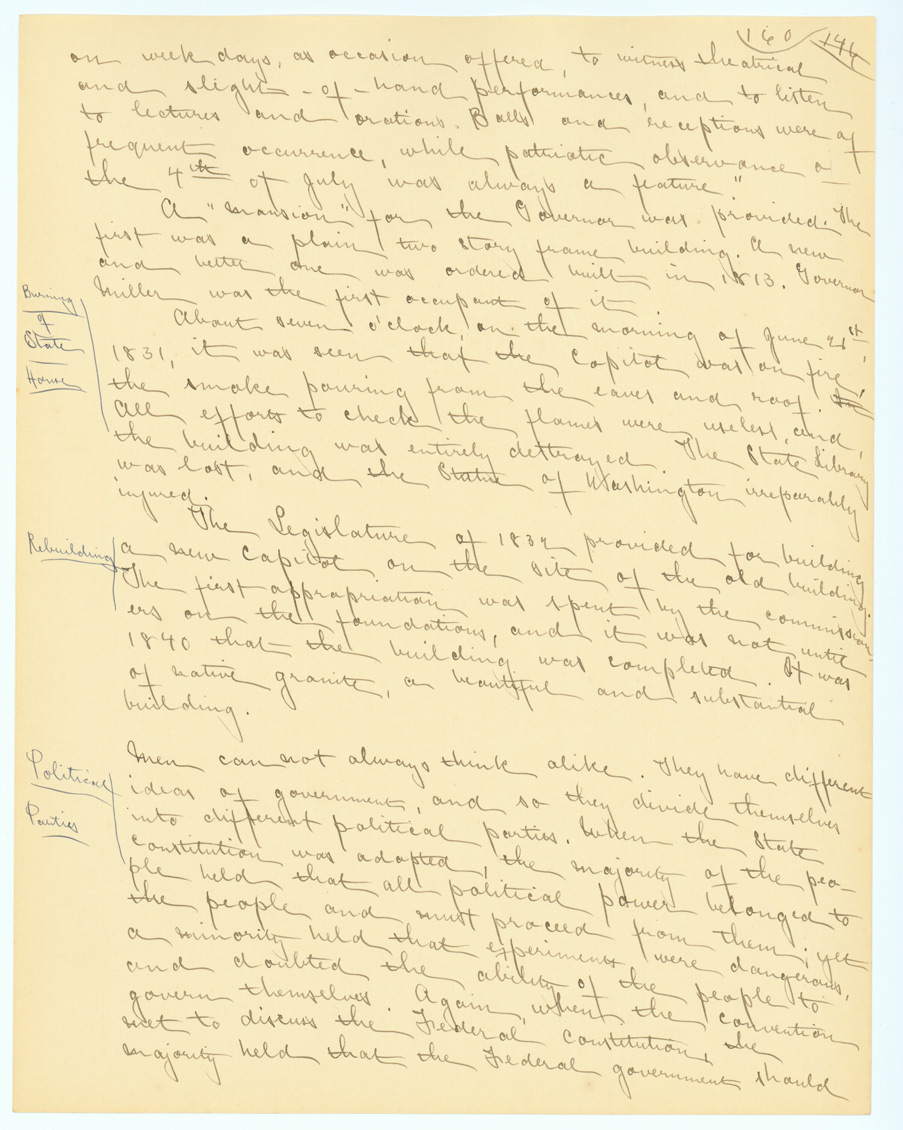 160 146
on week days, as occasion offered, to witness theatrical
and slight-of-hand performances, and to listen
to lectures and orations. Balls and receptions were of
frequent occurrence, while patriotic observance o
the 4th of July was always a feature"
A "mansion" for the Governor was provided. The
first was a plain two story frame building. A new
and better one was ordered built in 1813. Governor
Miller was the first occupant of it.
Burning
of
State
House
About seven o'clock, on the morning of June 21st,
1831, it was seen that the Capitol was on fire,
the smoke pouring from the eaves and roof.
All efforts to check the flames were useless, and
the building was entirely destroyed. The State Library
was lost, and the Statue of Washington irreparably
injured.
Rebuilding
The Legislature of 1832 provided for building
a new Capitol on the site of the old building.
The first appropriation was spent by the commission-
ers on the foundations, and it was not until
1840 that the building was completed. It was
of native granite, a beautiful and substantial
building.
Political
Parties
Men can not always think alike. They have different
ideas of government, and so they divide themselves
into different political parties. When the State
Constitution was adopted, the majority of the peo-
ple held that all political power belonged to
the people and must proceed from them; yet
a minority held that experiments were dangerous,
and doubted the ability of the people to
govern themselves. Again, when the convention
met to discuss the Federal Constitution, the
majority held that the Federal government should